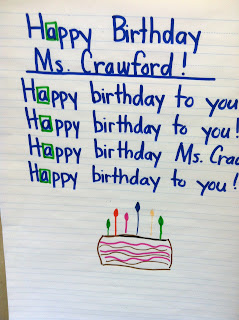 Happy Birthday
Ms. Crawford!
Happy birthday to you
Happy birthday to you!
Happy birthday Ms. Craw
Happy birthday to you!